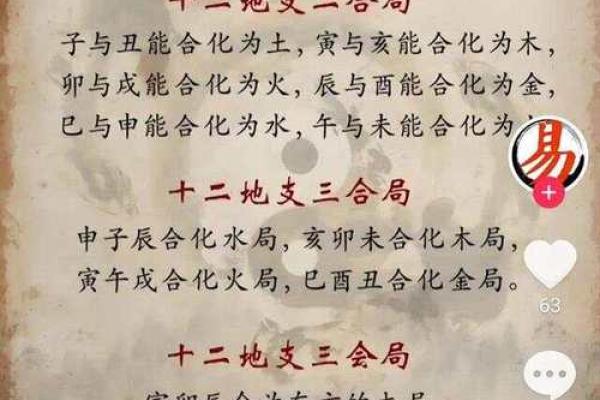 十二地支合局
子与丑能合化为土，寅与亥能合化为木，
卯与戌能合化为火，辰与酉能合化为金，
巳与申能合化为水，午与未能合化为
易
十二地支三合局
申子辰合化水局，亥卯未合化木局，
寅午戌合化火局，巳酉丑合化金局。
63
十二地支三会局
寅卯辰